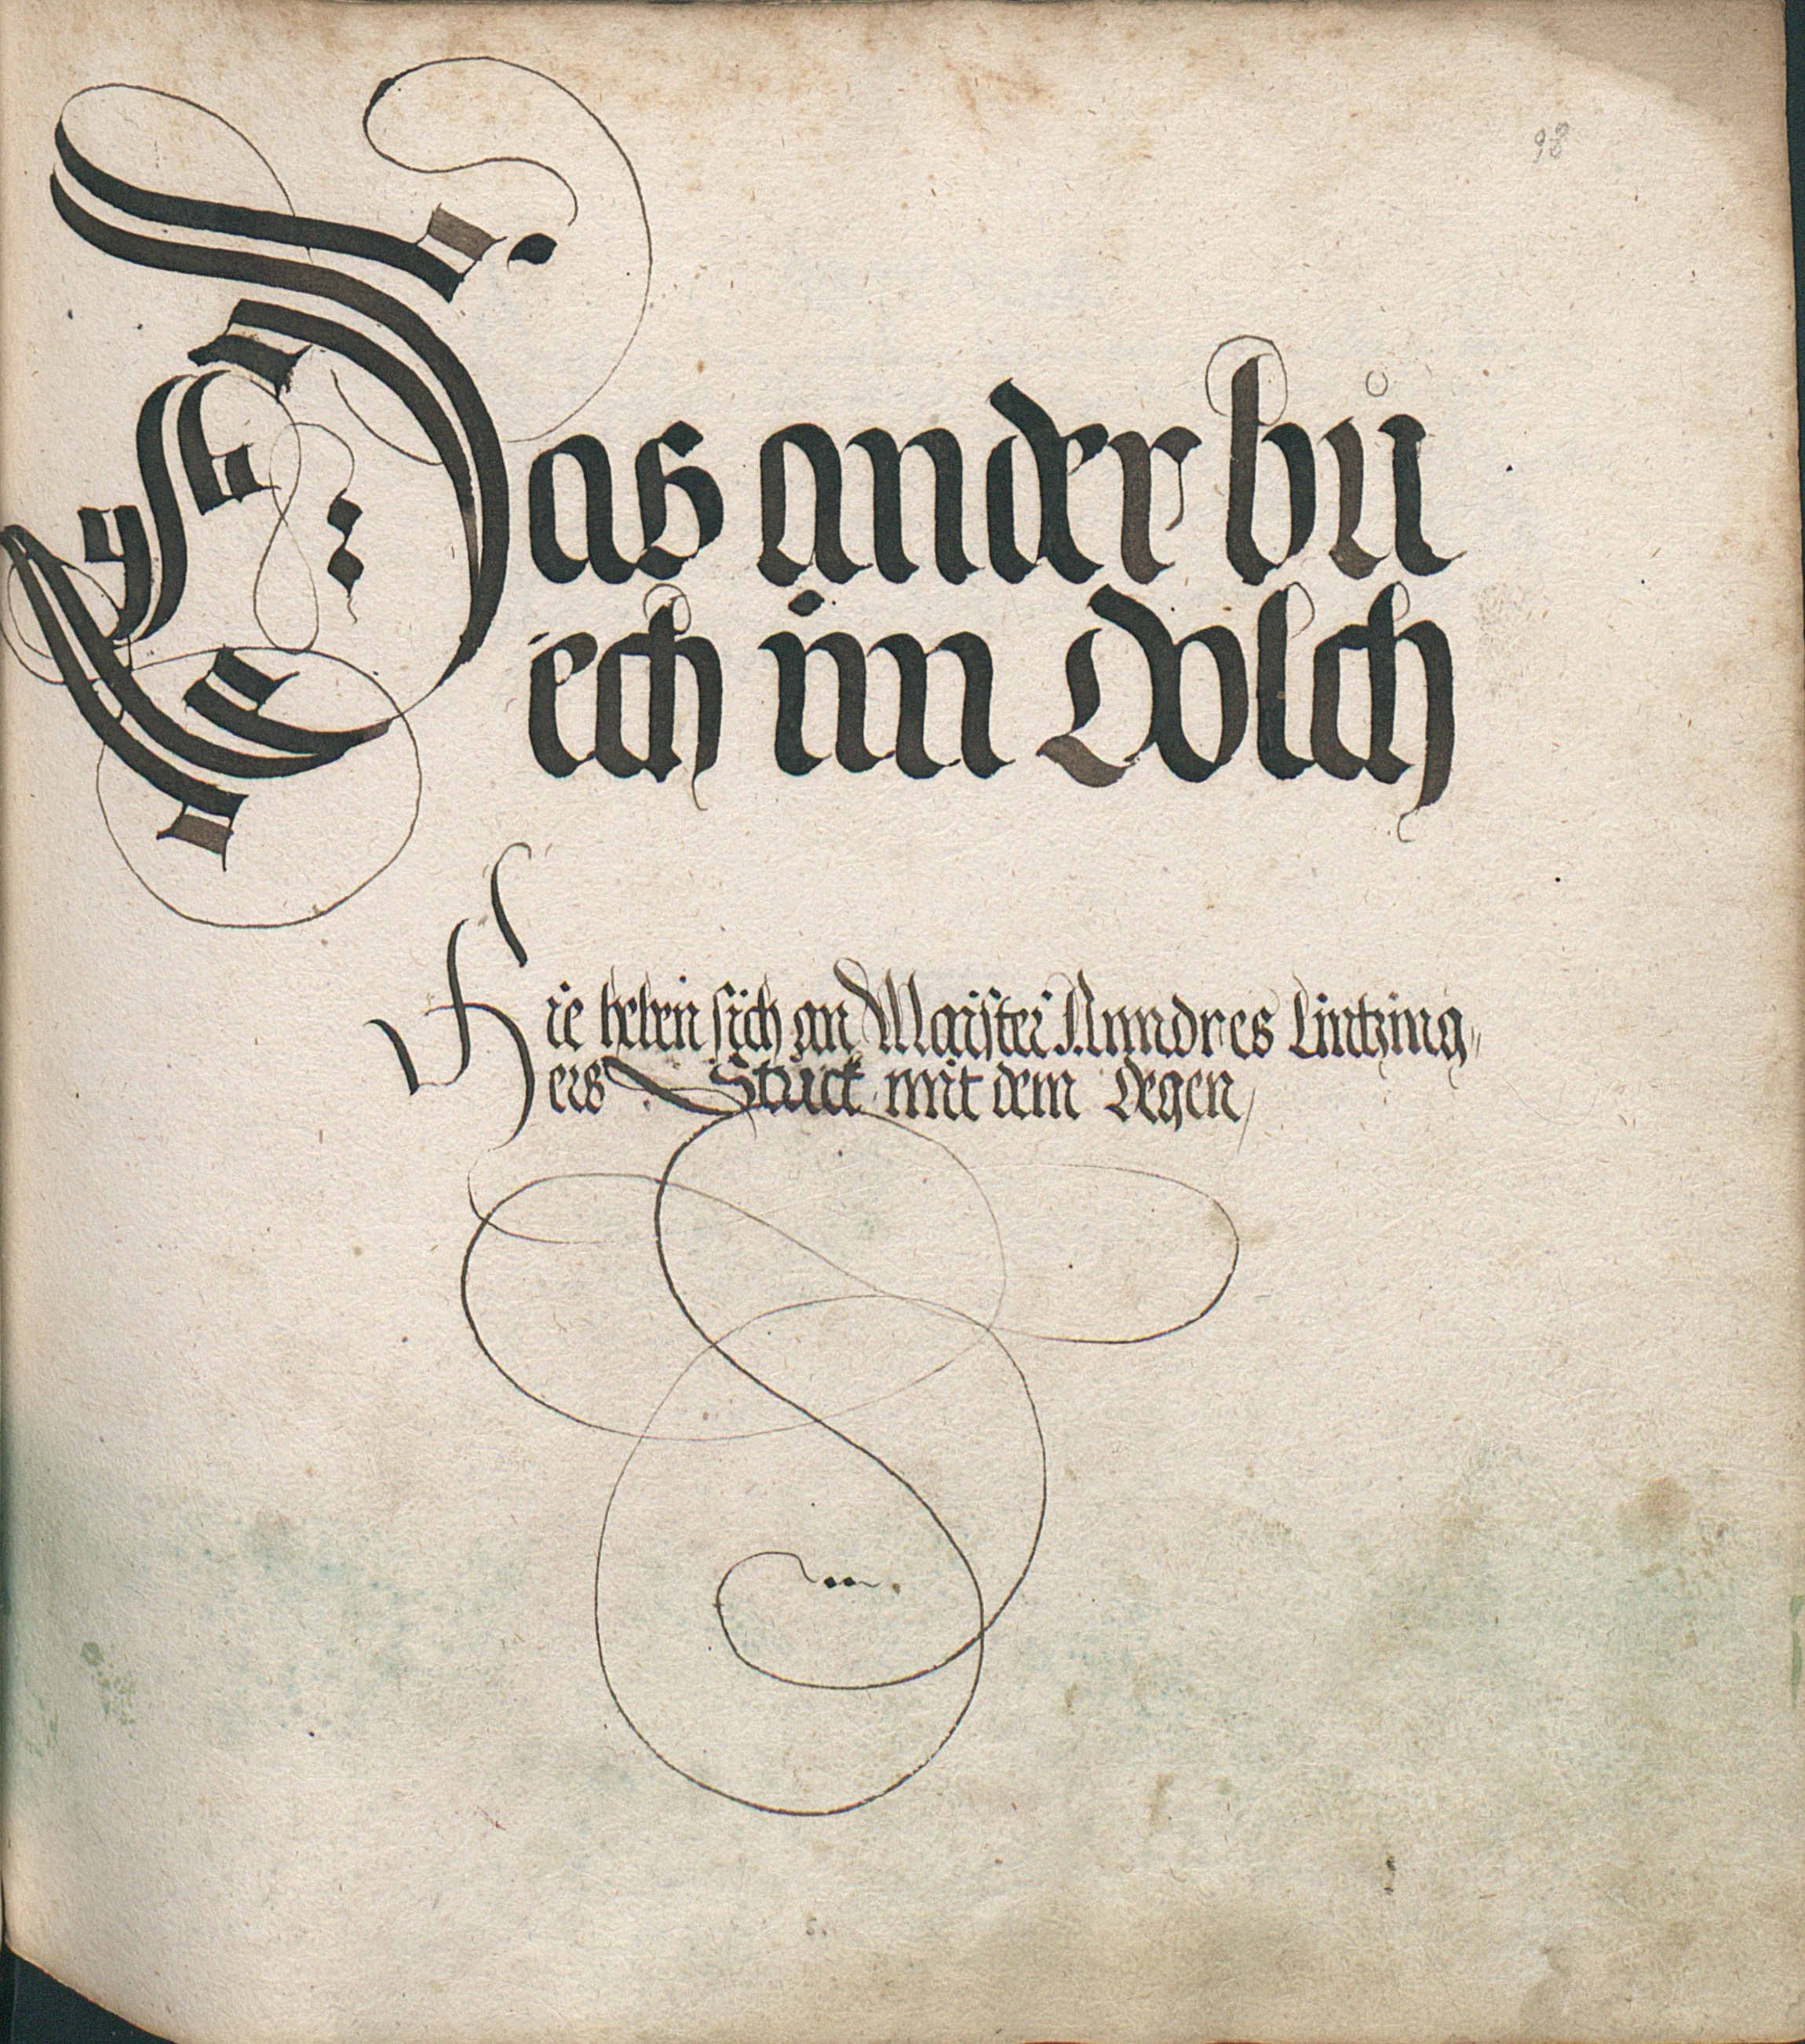 98
Das ander bů
ech im Dolch
Hie heben sich an Maister Anndres Lintzing„
ers Stuck mit dem Degen,